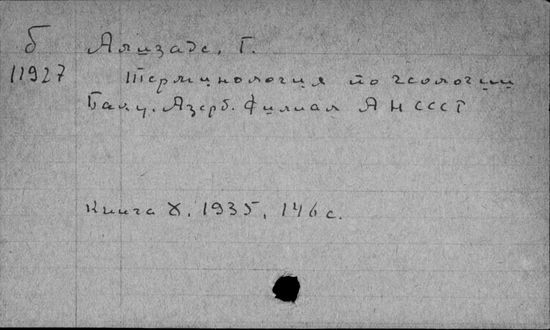 б Ализаде, Г.
11927 Терминология по геологии
Баку. Азерб. Филиал АН СССР
Книга X, 1935, 146 с.